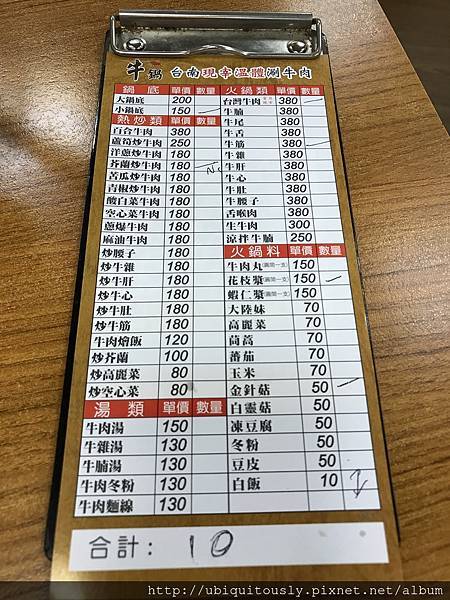 牛鍋 台南現宰溫體涮牛肉
鍋底 單價 數量
大鍋底 200
小鍋底 150
熱炒類 單價 數量
百合牛肉 380
蘆筍炒牛肉 250
洋蔥炒牛肉 180
芥蘭炒牛肉 180
苦瓜炒牛肉 180
青椒炒牛肉 180
酸白菜牛肉 180
空心菜牛肉 180
蔥爆牛肉 180
麻油牛肉 180
炒腰子 180
炒牛雜 180
炒牛肝 180
炒牛心 180
炒牛肚 180
炒牛筋 180
牛肉燴飯 120
炒芥蘭 100
炒高麗菜 80
炒空心菜 80
湯類 單價 數量
牛肉湯 150
牛雜湯 130
牛腩湯 130
牛肉冬粉 130
牛肉麵線 130
火鍋類 單價 數量
台灣牛肉 380
牛腩 380
牛尾 380
牛舌 380
牛筋 380
牛雜 380
牛肝 380
牛心 380
牛肚 380
牛腰子 380
舌喉肉 380
牛牛肉 300
涼拌牛腩 250
火鍋料 單價 數量
牛肉丸 150
花枝漿 150
蝦仁漿 150
大陸妹 70
高麗菜 70
茼蒿 70
蕃茄 70
玉米 70
金針菇 50
白靈菇 50
凍豆腐 50
冬粉 50
豆皮 50
白飯 10
合計: 10
http://ubiquitously.pixnet.net/album